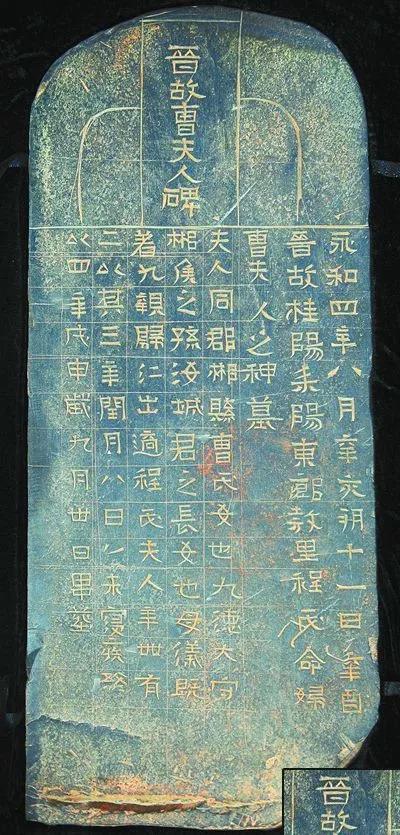 晉故曹夫人碑
永和四年八月辛亥朔十一日辛酉
晉故桂陽耒陽東鄉教里程氏命婦
曹夫人之神墓
夫人同郡郴縣曹氏女也九德大守
郴侯之孫汝城君之長女也母儀既
著九親歸仁出適程氏夫人年卅有
二以其三年閏月八日乙未寢疾終
以四年戊申歲九月卅日畢葬
晉故